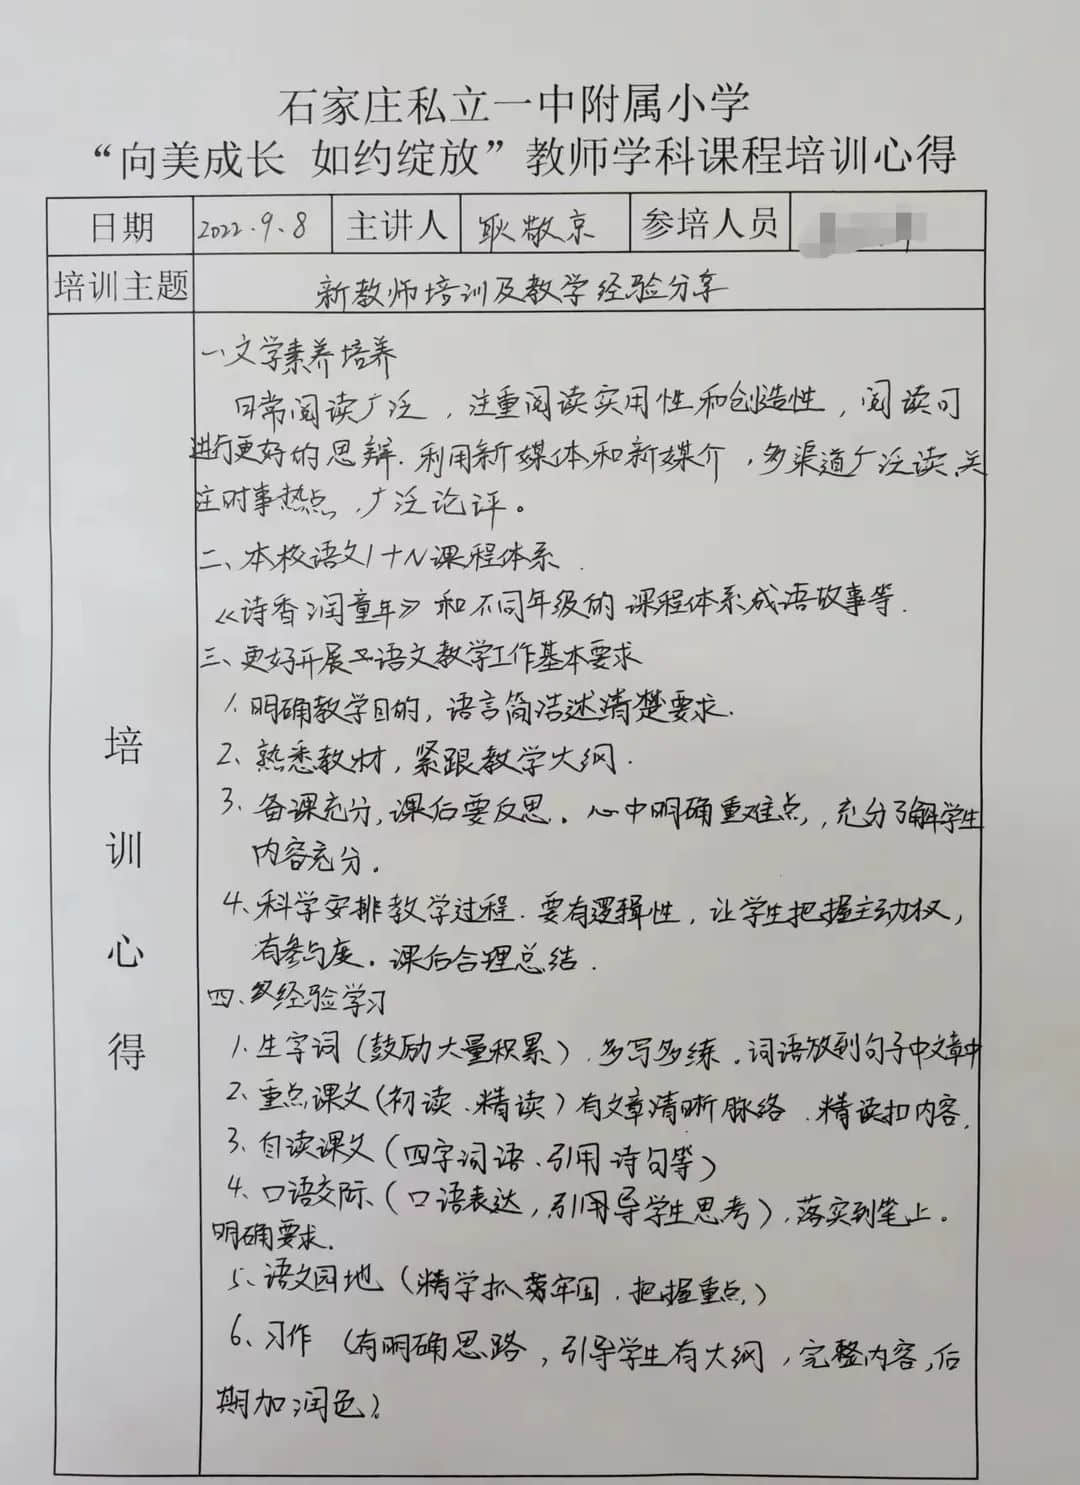 石家庄私立一中附属小学
“向美成长 如约绽放”教师学科课程培训心得
日期 2022.9.8 主讲人 耿敬京 参培人员
培训主题 新教师培训及教学经验分享
培训心得
一、文学素养培养
日常阅读广泛，注重阅读实用性和创造性，阅读可
进行更好的思辩.利用新媒体和新媒介，多渠道广泛读、关
注时事热点，广泛论评。
二、本校语文1+N课程体系.
《诗香润童年》和不同年级的课程体系成语故事等.
三、更好开展语文教学工作基本要求
1.明确教学目的，语言简洁述清楚要求.
2.熟悉教材，紧跟教学大纲.
3.备课充分，课后要反思。心中明确重难点，充分了解学生
内容充分.
4.科学安排教学过程.要有逻辑性，让学生把握主动权，
有参与度.课后合理总结.
四、经验学习
1.生字词（鼓励大量积累）.多写多练.词语放到句子中文章中
2.重点课文（初读、精读）有文章清晰脉络.精读扣内容.
3.自读课文（四字词语、引用诗句等）
4.口语交际（口语表达，引用导学生思考），落实到笔上。
明确要求.
5、语文园地（精学抓牢固.把握重点）
6、习作（有明确思路，引导学生有大纲，完整内容，后
期加润色）.